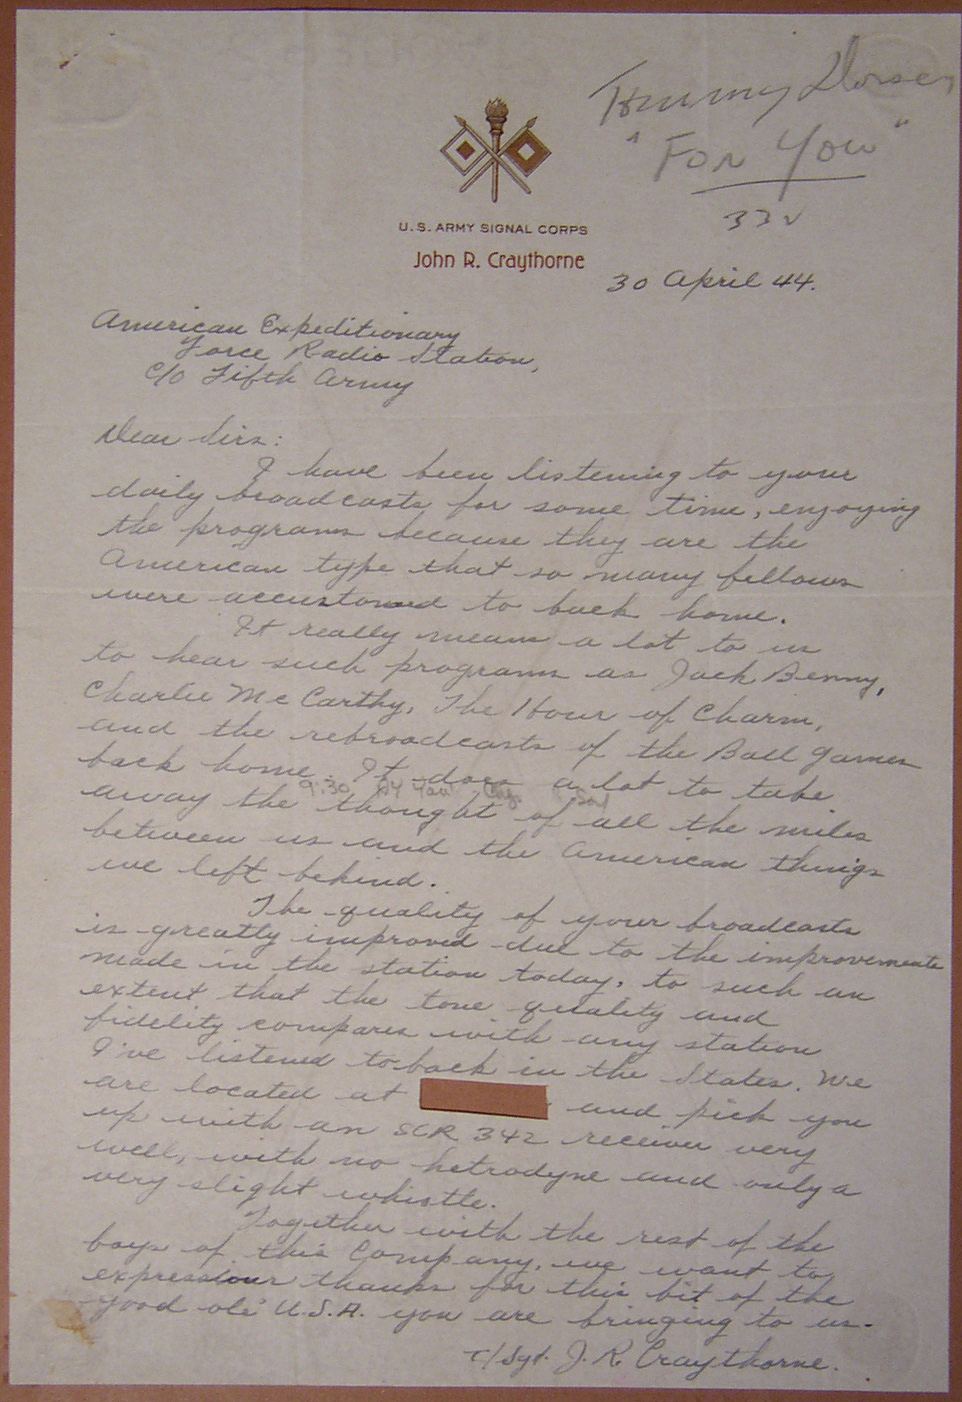 Tommy Dorsey
"For You"
332
U.S. ARMY SIGNAL CORPS
John R. Craythorne
30 April 44.
American Expeditionary
Force Radio Station,
c/o Fifth Army
Dear Sirs:
I have been listening to your
daily broadcasts for some time, enjoying
the programs because they are the
American type that so many fellows
were accustomed to back home.
It really means a lot to us
to hear such programs as Jack Benny,
Charlie McCarthy, The Hour of Charm,
and the rebroadcasts of the Ball games
back home. It does a lot to take
9:30
away the thought of all the miles
between us and the American things
we left behind.
The quality of your broadcasts
is greatly improved due to the improvements
made in the station today, to such an
extent that the tone quality and
fidelity compares with any station
I've listened to back in the States. We
are located at and pick you
up with an SCR 342 receiver very
well, with no hetrodyne and only a
very slight whistle.
Together with the rest of the
boys of this Company, we want to
express our thanks for this bit of the
good ole' U.S.A. you are bringing to us.
T/Sgt. J. R. Craythorne.